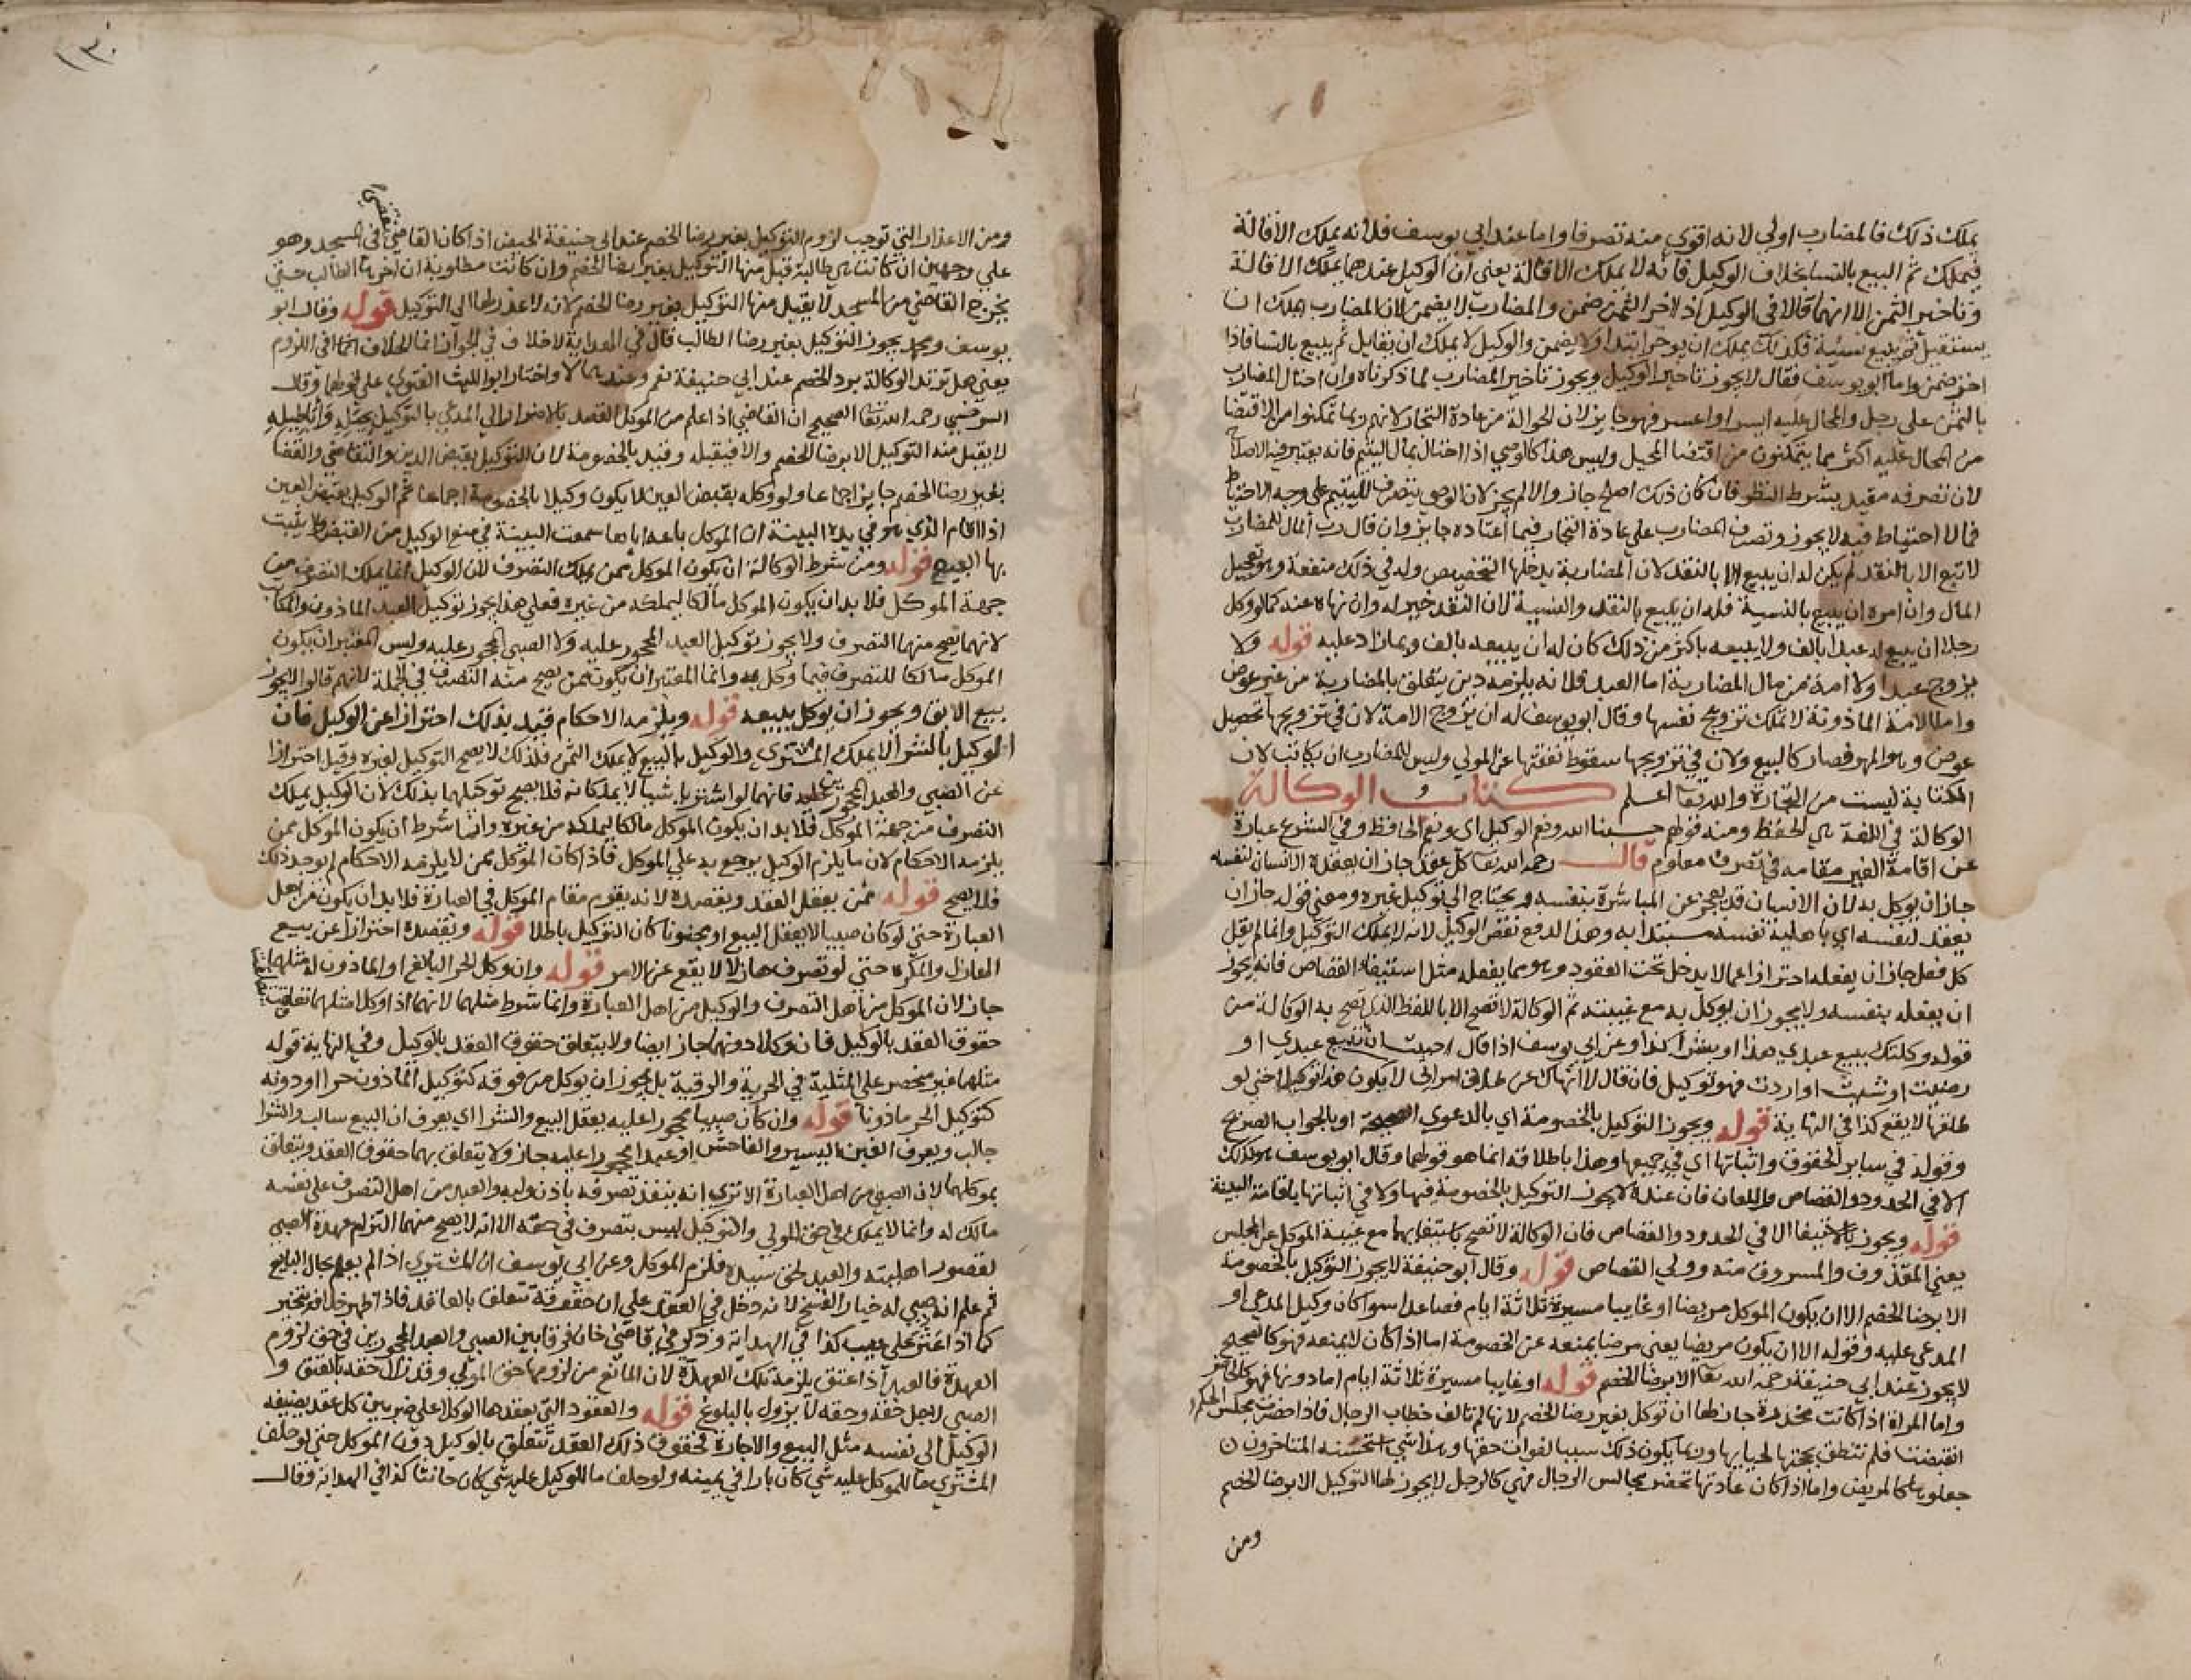 يملك ذلك فالمضارب اولي لانه اقوي منه تصرفا واما عند ابي يوسف فلانه يملك الاقالة
فيملك ثم البيع بالنسا بخلاف الوكيل فانه لا يملك الاقالة يعني ان الوكيل عندهما يملك الاقالة
وتاخير الثمن الا انهما قالا في الوكيل اذا اخر الثمن ضمن والمضارب لا يضمن لان المضارب يملك ان
يستقيل ثم يبيع نسيئة فكذلك يملك ان يوخر ابتدا ولا يضمن والوكيل لا يملك ان يتقايل ثم يبيع بالنسا فاذا
اخر ضمن واما ابو يوسف فقال لا يجوز تاخير الوكيل ويجوز تاخير المضارب لما ذكرناه وان احتال المضارب
بالثمن علي رجل والمحال عليه ايسر او اعسر فهو جايز لان الحوالة من عادة التجار لانهم ربما تمكنوا من الاقتضا
من المحال عليه اكثر مما يتمكنون من اقتضا المحيل وليس هذا كالوصي اذا احتال بمال اليتيم فانه يعتبر فيه الاصلاح
لان تصرفه مقيد بشرط النظر فان كان ذلك اصلح جاز والا لم يجز لان الوصي يتصرف لليتيم علي وجه الاحتياط
فما لا احتياط فيه لا يجوز وتصرف المضارب علي عادة التجار فيما اعتاده جايز وان قال رب المال للمضارب
لا تبع الا بالنقد لم يكن له ان يبيع الا بالنقد لان المضاربة يدخلها التخصيص وله في ذلك منفعة وهو تعجيل
المال وان امره ان يبيع بالنسية فله ان يبيع بالنقد والنسية لان النقد خير له وان نهاه عنه كمالو وكل
رجلا ان يبيع له عبدا بالف ولا يبيعه باكثر من ذلك كان له ان يبيعه بالف وبما زاد عليه قوله ولا
يزوج عبدا ولا امة من مال المضاربة اما العبد فلانه يلزمه دين يتعلق بالمضاربة من غير عوض
واما الامة الماذونة لا تملك تزويج نفسها وقال ابو يوسف له ان يزوج الامة لان في تزويجها تحصيل
عوض وهو المهر فصار كالبيع ولان في تزويجها سقوط نفقتها عن المولي وليس للمضارب ان يكاتب لان
المكتابة ليست من التجارة والله تعا اعلم كتاب الوكالة
الوكالة في اللغة هي الحفظ ومنه قولهم حسبنا الله ونعم الوكيل اي ونعم الحافظ وفي الشرع عبارة
عن اقامة الغير مقامه في تصرف معلوم قال رحمه الله تعا كل عقد جاز ان يعقده الانسان لنفسه
جاز ان يوكل به لان الانسان قد يعجز عن المباشرة بنفسه فيحتاج الي توكيل غيره ومعني قوله جاز ان
يعقد لنفسه اي باهلية نفسه مستبدا به وهذا لدفع نقض الوكيل لانه لا يملك التوكيل وانما لم يقل
كل فعل جاز ان يفعله احترازا عما لا يدخل تحت العقود وهو مما يفعله مثل استيفا القصاص فانه يجوز
ان يفعله بنفسه ولا يجوز ان يوكل به مع غيبته ثم الوكالة لا تصح الا باللفظ الذي تصح به الوكالة من
قوله وكلتك ببيع عبدي هذا او بشرا كذا وعن ابي يوسف اذا قال احببت ان تبيع عبدي او
رضيت او شيت او اردت فهو توكيل فان قال لا انهاك عن طلاق امراتي لا يكون هذا توكيلا حتي لو
طلقها لا يقع كذا في النهاية قوله ويجوز التوكيل بالخصومة اي بالدعوي الصحيحة او بالجواب الصريح
وقوله في ساير الحقوق واثباتها اي في جميعها وهذا باطلاقه انما هو قولهما وقال ابو يوسف كذلك
الا في الحدود والقصاص واللعان فان عنده لا يجوز التوكيل بالخصومة فيها ولا في اثباتها باقامة البينة
قوله ويجوز بالاستيفا الا في الحدود والقصاص فان الوكالة لا تصح باستيفايهما مع غيبة الموكل عن المجلس
يعني المقذوف والمسروق منه وولي القصاص قوله وقال ابو حنيفة لا يجوز التوكيل بالخصومة
الا برضا الخصم الا ان يكون الموكل مريضا او غايبا مسيرة ثلاثة ايام فصاعدا سوا كان وكيل المدعي او
المدعي عليه وقوله الا ان يكون مريضا يعني مرضا يمنعه عن الخصومة اما اذا كان لا يمنعه فهو كالصحيح
لا يجوز عند ابي حنيفة رحمه الله تعا الا برضا الخصم قوله او غايبا مسيرة ثلاثة ايام اما دونها فهو كالحاضر
واما المراة اذا كانت مخدرة جاز لها ان توكل بغير رضا الخصم لانها لم تالف خطاب الرجال فاذا حضرت مجلس الحكم
انقبضت فلم تنطق بحجتها لحيايها وربما يكون ذلك سببا لفوات حقها وهذا شي استحسنه المتاخرون
جعلوها كالمريض واما اذا كان عادتها تحضر مجالس الرجال فهي كالرجل لا يجوز لها التوكيل الا برضا الخصم
ومن
١٣٠
ومن الاعذار التي توجب لزوم التوكيل بغير رضا الخصم عند ابي حنيفة الحيض اذا كان القاضي في المسجد وهو
علي وجهين ان كانت هي طالبة قبل منها التوكيل بغير رضا الخصم وان كانت مطلوبة ان اخرها الطالب حتي
يخرج القاضي من المسجد لا يقبل منها التوكيل بغير رضا الخصم لانه لا عذر لها الي التوكيل قوله وقال ابو
يوسف ومحمد يجوز التوكيل بغير رضا الطالب قال في الهداية لا خلاف في الجواز انما الخلاف في اللزوم
يعني هل ترتد الوكالة برد الخصم عند ابي حنيفة نعم وعندهما لا واختار ابو الليث الفتوي علي قولهما وقال
السرخسي رحمه الله تعا الصحيح ان القاضي اذا علم من الموكل القصد بالاضرار الي المدعي بالتوكيل
لا يقبل منه التوكيل الا برضا الخصم والا فيقبله وقيد بالخصومة لان التوكيل بقبض الدين والتقاضي والقضا
بغير رضا الخصم جايز اجماعا ولو وكله بقبض العين لا يكون وكيلا بالخصومة اجماعا ثم الوكيل بقبض العين
اذا اقام الذي هو في يده البينة ان الموكل باعه اياها سمعت البينة في منع الوكيل من القبض ولا يثبت
بها البيع قوله ومن شرط الوكالة ان يكون الموكل ممن يملك التصرف لان الوكيل انما يملك التصرف من
جهة الموكل فلا بد ان يكون الموكل مالكا ليملكه من غيره فعلي هذا يجوز توكيل العبد الماذون والمكاتب
لانهما يصح منهما التصرف ولا يجوز توكيل العبد المحجور عليه ولا الصبي المحجور عليه وليس المعتبر ان يكون
الموكل مالكا للتصرف فيما وكل به وانما المعتبر ان يكون ممن يصح منه التصرف في الجملة لانهم قالوا لا يجوز
بيع الابق ويجوز ان يوكل ببيعه قوله ويلزمه الاحكام قيد بذلك احترازا عن الوكيل فان
الوكيل بالشرا لا يملك المشتري والوكيل بالبيع لا يملك الثمن فلذلك لا يصح التوكيل لغيره وقيل احترازا
عن الصبي والعبد المحجور عليهما فانهما لو اشتريا شيا لا يملكانه فلا يصح توكيلهما بذلك لان الوكيل يملك
التصرف من جهة الموكل فلا بد ان يكون الموكل مالكا ليملكه من غيره وانما شرط ان يكون الموكل ممن
يلزمه الاحكام لان ما يلزم الوكيل يرجع به علي الموكل فاذا كان الموكل ممن لا يلزمه الاحكام لم يوجد ذلك
فلا يصح قوله ممن يعقل العقد ويقصده لانه يقوم مقام الموكل في العبارة فلا بد ان يكون من اهل
العبارة حتي لو كان صبيا لا يعقل البيع او مجنونا كان التوكيل باطلا قوله ويقصده احترازا عن بيع
الهازل والمكره حتي لو تصرف هازلا لا يقع عن الامر قوله وان وكل الحر البالغ او الماذون له مثلهما
جاز لان الموكل من اهل التصرف والوكيل من اهل العبارة وانما شرط مثلهما لانهما اذا وكلا مثلهما تعلقت
حقوق العقد بالوكيل فان وكلا دونهما جاز ايضا ولا يتعلق حقوق العقد بالوكيل وفي النهاية قوله
مثلهما غير منحصر علي المثلية في الحرية والرقية بل يجوز ان يوكل من فوقه كتوكيل الماذون حرا او دونه
كتوكيل الحر ماذونا قوله وان كان صبيا محجورا عليه يعقل البيع والشرا اي يعرف ان البيع سالب والشرا
جالب ويعرف الغبن اليسير والفاحش او عبدا محجورا عليه جاز ولا يتعلق بهما حقوق العقد ويتعلق
بموكلهما لان الصبي من اهل العبارة الا تري انه ينفذ تصرفه باذن وليه والعبد من اهل التصرف علي نفسه
مالك له وانما لا يملك في حق المولي والتوكيل ليس بتصرف في حقه الا انه لا يصح منهما التزام عهدة الصبي
لقصور اهليته والعبد لحق سيده فلزم الموكل وعن ابي يوسف ان المشتري اذا لم يعلم بحال البايع
ثم علم انه صبي له خيار الفسخ لانه دخل في العقد علي ان حقوقه تتعلق بالعاقد فاذا ظهر خلافه يتخير
كما اذا عثر علي عيب كذا في الهداية وذكر في قاضي خان فرقا بين الصبي والعبد المحجورين في حق لزوم
العهدة فالعبد اذا عتق يلزمه تلك العهدة لان المانع من لزومها حق المولي وقد زال حقه بالعتق و
الصبي لاجل حقه وحقه لا يزول بالبلوغ قوله والعقود التي يعقدها الوكلا علي ضربين كل عقد يضيفه
الوكيل الي نفسه مثل البيع والاجارة فحقوق ذلك العقد تتعلق بالوكيل دون الموكل حتي لو حلف
المشتري ما للموكل عليه شي كان بارا في يمينه ولو حلف ما للوكيل عليه شي كان حانثا كذا في الهداية وقال